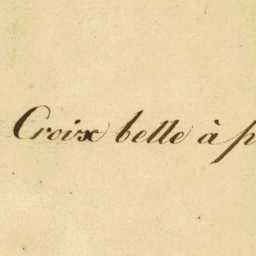 Croix belle à p